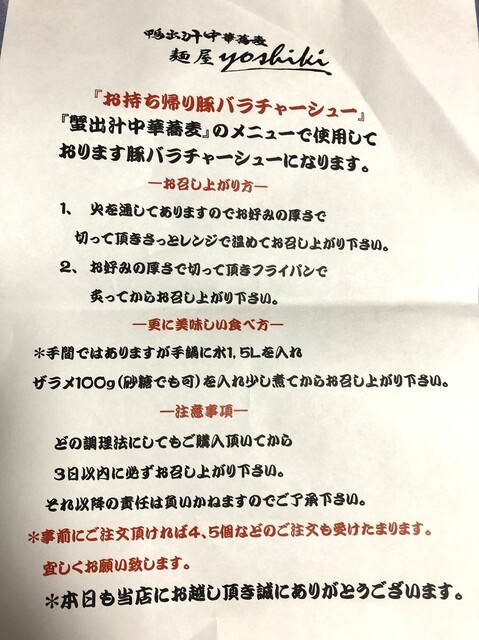 鴨出汁中華蕎麦
麺屋yoshiki
『お持ち帰り豚バラチャーシュー』
『蟹出汁中華蕎麦』のメニューで使用して
おります豚バラチャーシューになります。
―お召し上がり方―
1、 火を通してありますのでお好みの厚さで
切って頂きさっとレンジで温めてお召し上がり下さい。
2、 お好みの厚さで切って頂きフライパンで
炙ってからお召し上がり下さい。
―更に美味しい食べ方―
＊手間ではありますが手鍋に水1,5Lを入れ
ザラメ100g(砂糖でも可)を入れ少し煮てからお召し上がり下さい。
―注意事項―
どの調理法にしてもご購入頂いてから
3日以内に必ずお召し上がり下さい。
それ以降の責任は負いかねますのでご了承下さい。
＊事前にご注文頂ければ4、5個などのご注文も受けたまります。
宜しくお願い致します。
＊本日も当店にお越し頂き誠にありがとうございます。